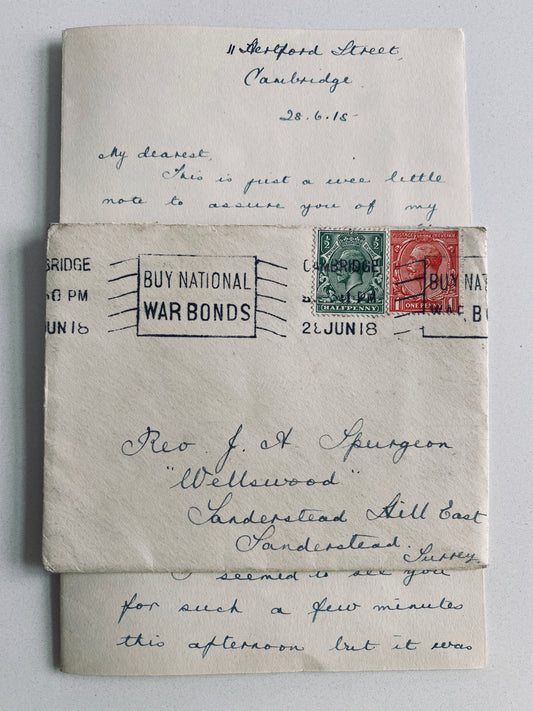 11 Hertford Street,
Cambridge.
28.6.18
My dearest,
This is just a wee little
note to assure you of my
BRIDGE
BUY NATIONAL
WAR BONDS
50 PM
JUN 18
CAMBRIDGE
PM
28 JUN 18
½ ½
HALFPENNY
1 ONE PENNY 1
BUY NAT
WAR B
Rev J. A. Spurgeon
"Wellswood"
Sanderstead Hill East
Sanderstead.
Surrey
I seemed to see you
for such a few minutes
this afternoon but it was